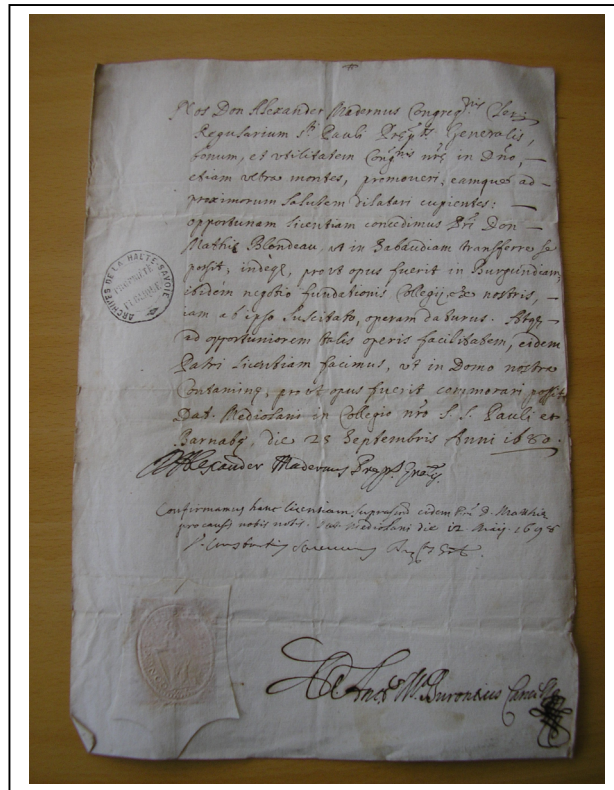 Nos Don Alexander Madernus Congreg.nis Cler.
Regularium S.ti Pauli Præp.tus Generalis,
bonum, et utilitatem Cong.nis nræ in Dño,
etiam ultra montes, promoveri, eamque ad
proximorum salutem dilatari cupientes:
opportunam licentiam concedimus Pri Don
Mathiæ Blondeau, ut in Sabaudiam transferre se
possit, indeq;, prout opus fuerit in Burgundiam,
ibidem negotio fundationis Collegij nostris,
iam ab ipso suscitato, operam daturus. Atq;
ad opportuniorem talis operis facilitatem, eidem
Patri licentiam facimus, ut in Domo nostra
Contamine, prout opus fuerit commorari possit
Dat. Mediolani in Collegio nro S.S. Pauli et
Barnabę, die 28 Septembris Anni 1680.
D Alexander Madernus Præp.s Gnalis
Confirmamus hanc licentiam eidem Pri D. Matthiæ
pro causis nobis notis. Dat. Mediolani die 12 Maij 1698
D. M.a Burontius Cancell.s
ARCHIVES DE LA HAUTE-SAVOIE
PROPRIÉTÉ
PUBLIQUE